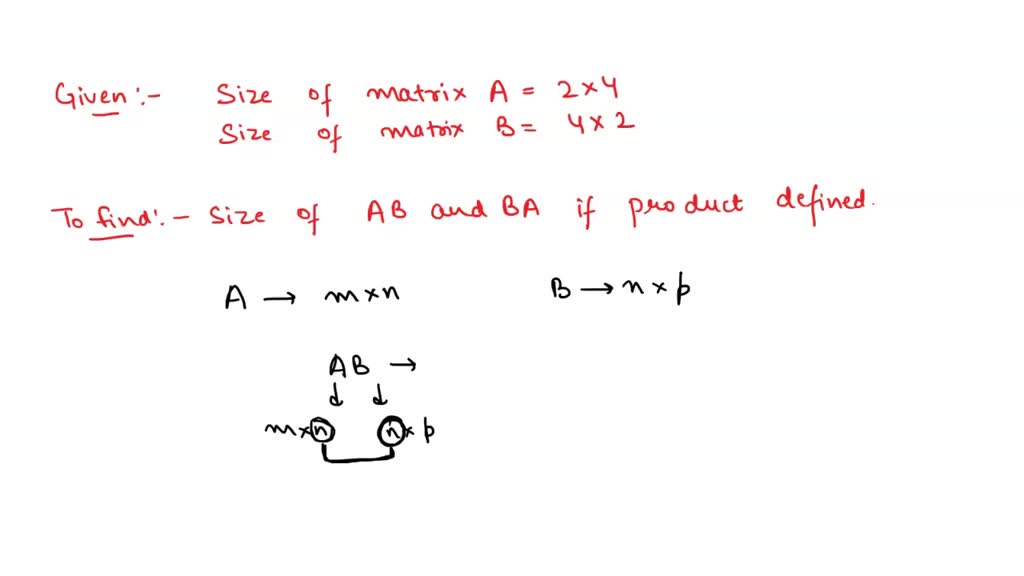 Given :- Size of matrix A = 2×4
Size of matrix B = 4×2
To find :- Size of AB and BA if product defined.
A → m×n B → n×p
AB →
↓ ↓
m×n n×p